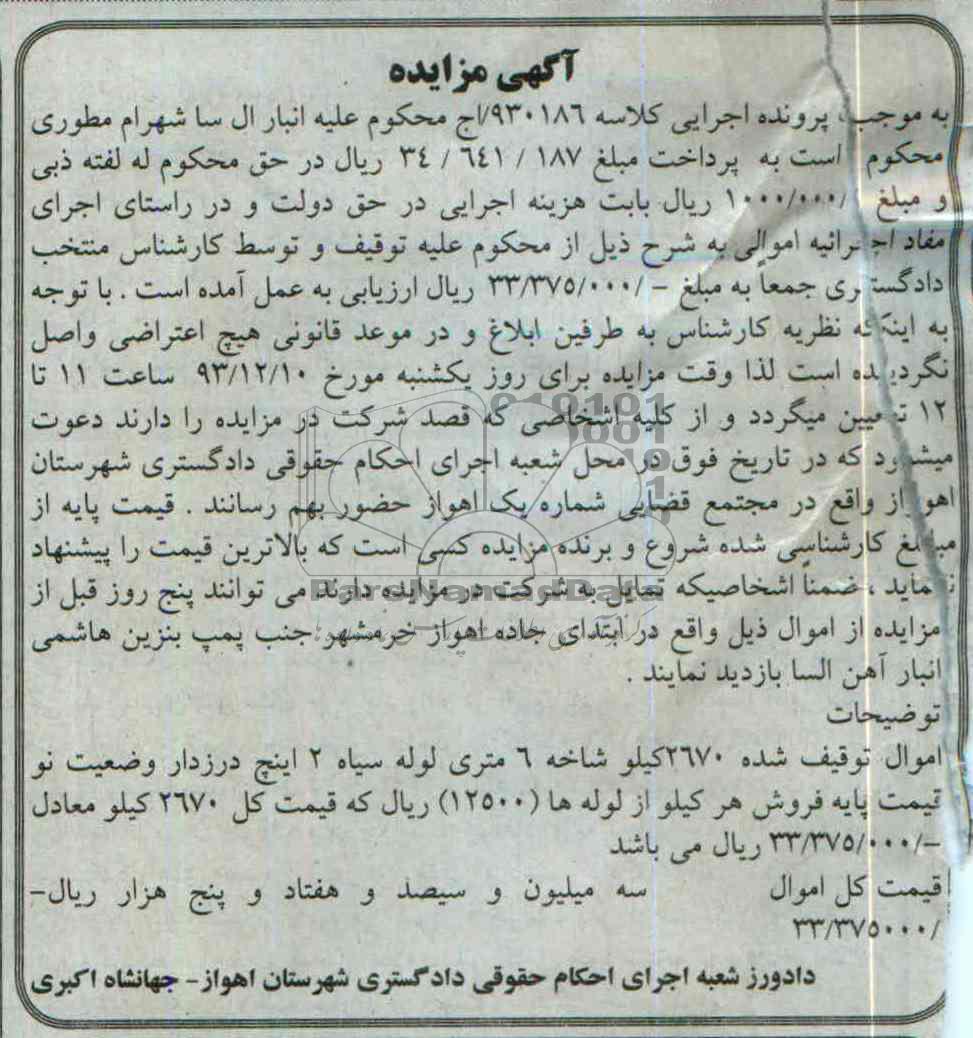 آگهی مزایده
به موجب پرونده اجرایی کلاسه ۹۳۰۱۸۶/اج محکوم علیه انبار ال سا شهرام مطوری
محکوم است به پرداخت مبلغ ۱۸۷ / ٦٤١ / ٣٤ ریال در حق محکوم له لفته ذبی
و مبلغ ۱۰۰۰/۰۰۰/ ریال بابت هزینه اجرایی در حق دولت و در راستای اجرای
مفاد اجرائیه اموالی به شرح ذیل از محکوم علیه توقیف و توسط کارشناس منتخب
دادگستری جمعاً به مبلغ -/۳۳/۳۷۵/۰۰۰ ریال ارزیابی به عمل آمده است . با توجه
به اینکه نظریه کارشناس به طرفین ابلاغ و در موعد قانونی هیچ اعتراضی واصل
نگردیده است لذا وقت مزایده برای روز یکشنبه مورخ ۹۳/۱۲/۱۰ ساعت ۱۱ تا
۱۲ تعیین میگردد و از کلیه اشخاصی که قصد شرکت در مزایده را دارند دعوت
میشود که در تاریخ فوق در محل شعبه اجرای احکام حقوقی دادگستری شهرستان
اهواز واقع در مجتمع قضایی شماره یک اهواز حضور بهم رسانند . قیمت پایه از
مبلغ کارشناسی شده شروع و برنده مزایده کسی است که بالاترین قیمت را پیشنهاد
نماید ، ضمناً اشخاصیکه تمایل به شرکت در مزایده دارند می توانند پنج روز قبل از
مزایده از اموال ذیل واقع در ابتدای جاده اهواز خرمشهر جنب پمپ بنزین هاشمی
انبار آهن السا بازدید نمایند .
توضیحات
اموال توقیف شده ۲٦۷۰کیلو شاخه ٦ متری لوله سیاه ۲ اینچ درزدار وضعیت نو
قیمت پایه فروش هر کیلو از لوله ها (۱۲۵۰۰) ریال که قیمت کل ۲٦۷۰ کیلو معادل
-/۳۳/۳۷۵/۰۰۰ ریال می باشد
قیمت کل اموال سه میلیون و سیصد و هفتاد و پنج هزار ریال-
/۳۳/۳۷۵۰۰۰
دادورز شعبه اجرای احکام حقوقی دادگستری شهرستان اهواز- جهانشاه اکبری
ParsNamadData